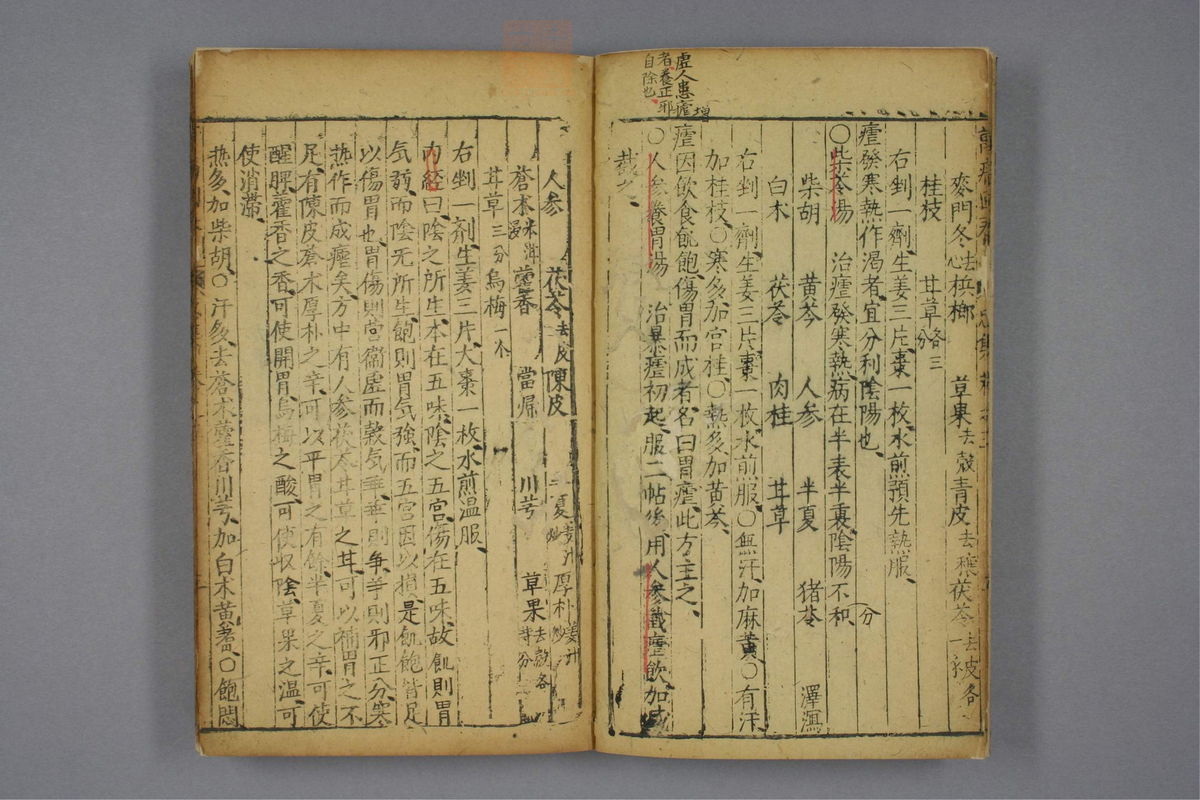 增
虛人患瘧
者養正邪
自除也
麥門冬去心 梹榔 草果去殼 青皮去穰 茯苓去皮各一
桂枝 甘草各三分
右剉一劑生姜三片棗一枚水煎預先熱服
瘧發寒熱作渴者宜分利陰陽也
○柴苓湯 治瘧發寒熱病在半表半裏陰陽不和分
柴胡 黃芩 人參 半夏 猪苓 澤瀉
白朮 茯苓 肉桂 甘草
右剉一劑生姜三片棗一枚水煎服○無汗加麻黃○有汗
加桂枝○寒多加官桂○熱多加黃芩
瘧因飲食飢飽傷胃而成者名曰胃瘧此方主之
○人參養胃湯 治暴瘧初起服二帖後用人參截瘧飲加減
截之
人參 茯苓去皮 陳皮 半夏姜汁炒 厚朴姜汁炒
蒼朮米泔浸 藿香 當歸 川芎 草果去殼各等分
甘草三分 烏梅一个
右剉一剂生姜三片大棗一枚水煎温服
内經曰陰之所生本在五味陰之五宮傷在五味故飢則胃
気弱而陰无所生飽則胃気強而五宮因以損是飢飽皆足
以傷胃也胃傷則営衛虛而榖気乖乖則争争則邪正分寒
热作而成瘧矣方中有人参茯苓甘草之甘可以補胃之不
足有陳皮蒼朮厚朴之辛可以平胃之有餘半夏之辛可使
醒脾藿香之香可使開胃烏梅之酸可使収陰草果之温可
使消滞
热多加柴胡○汗多去蒼朮藿香川芎加白朮黃耆○飽悶